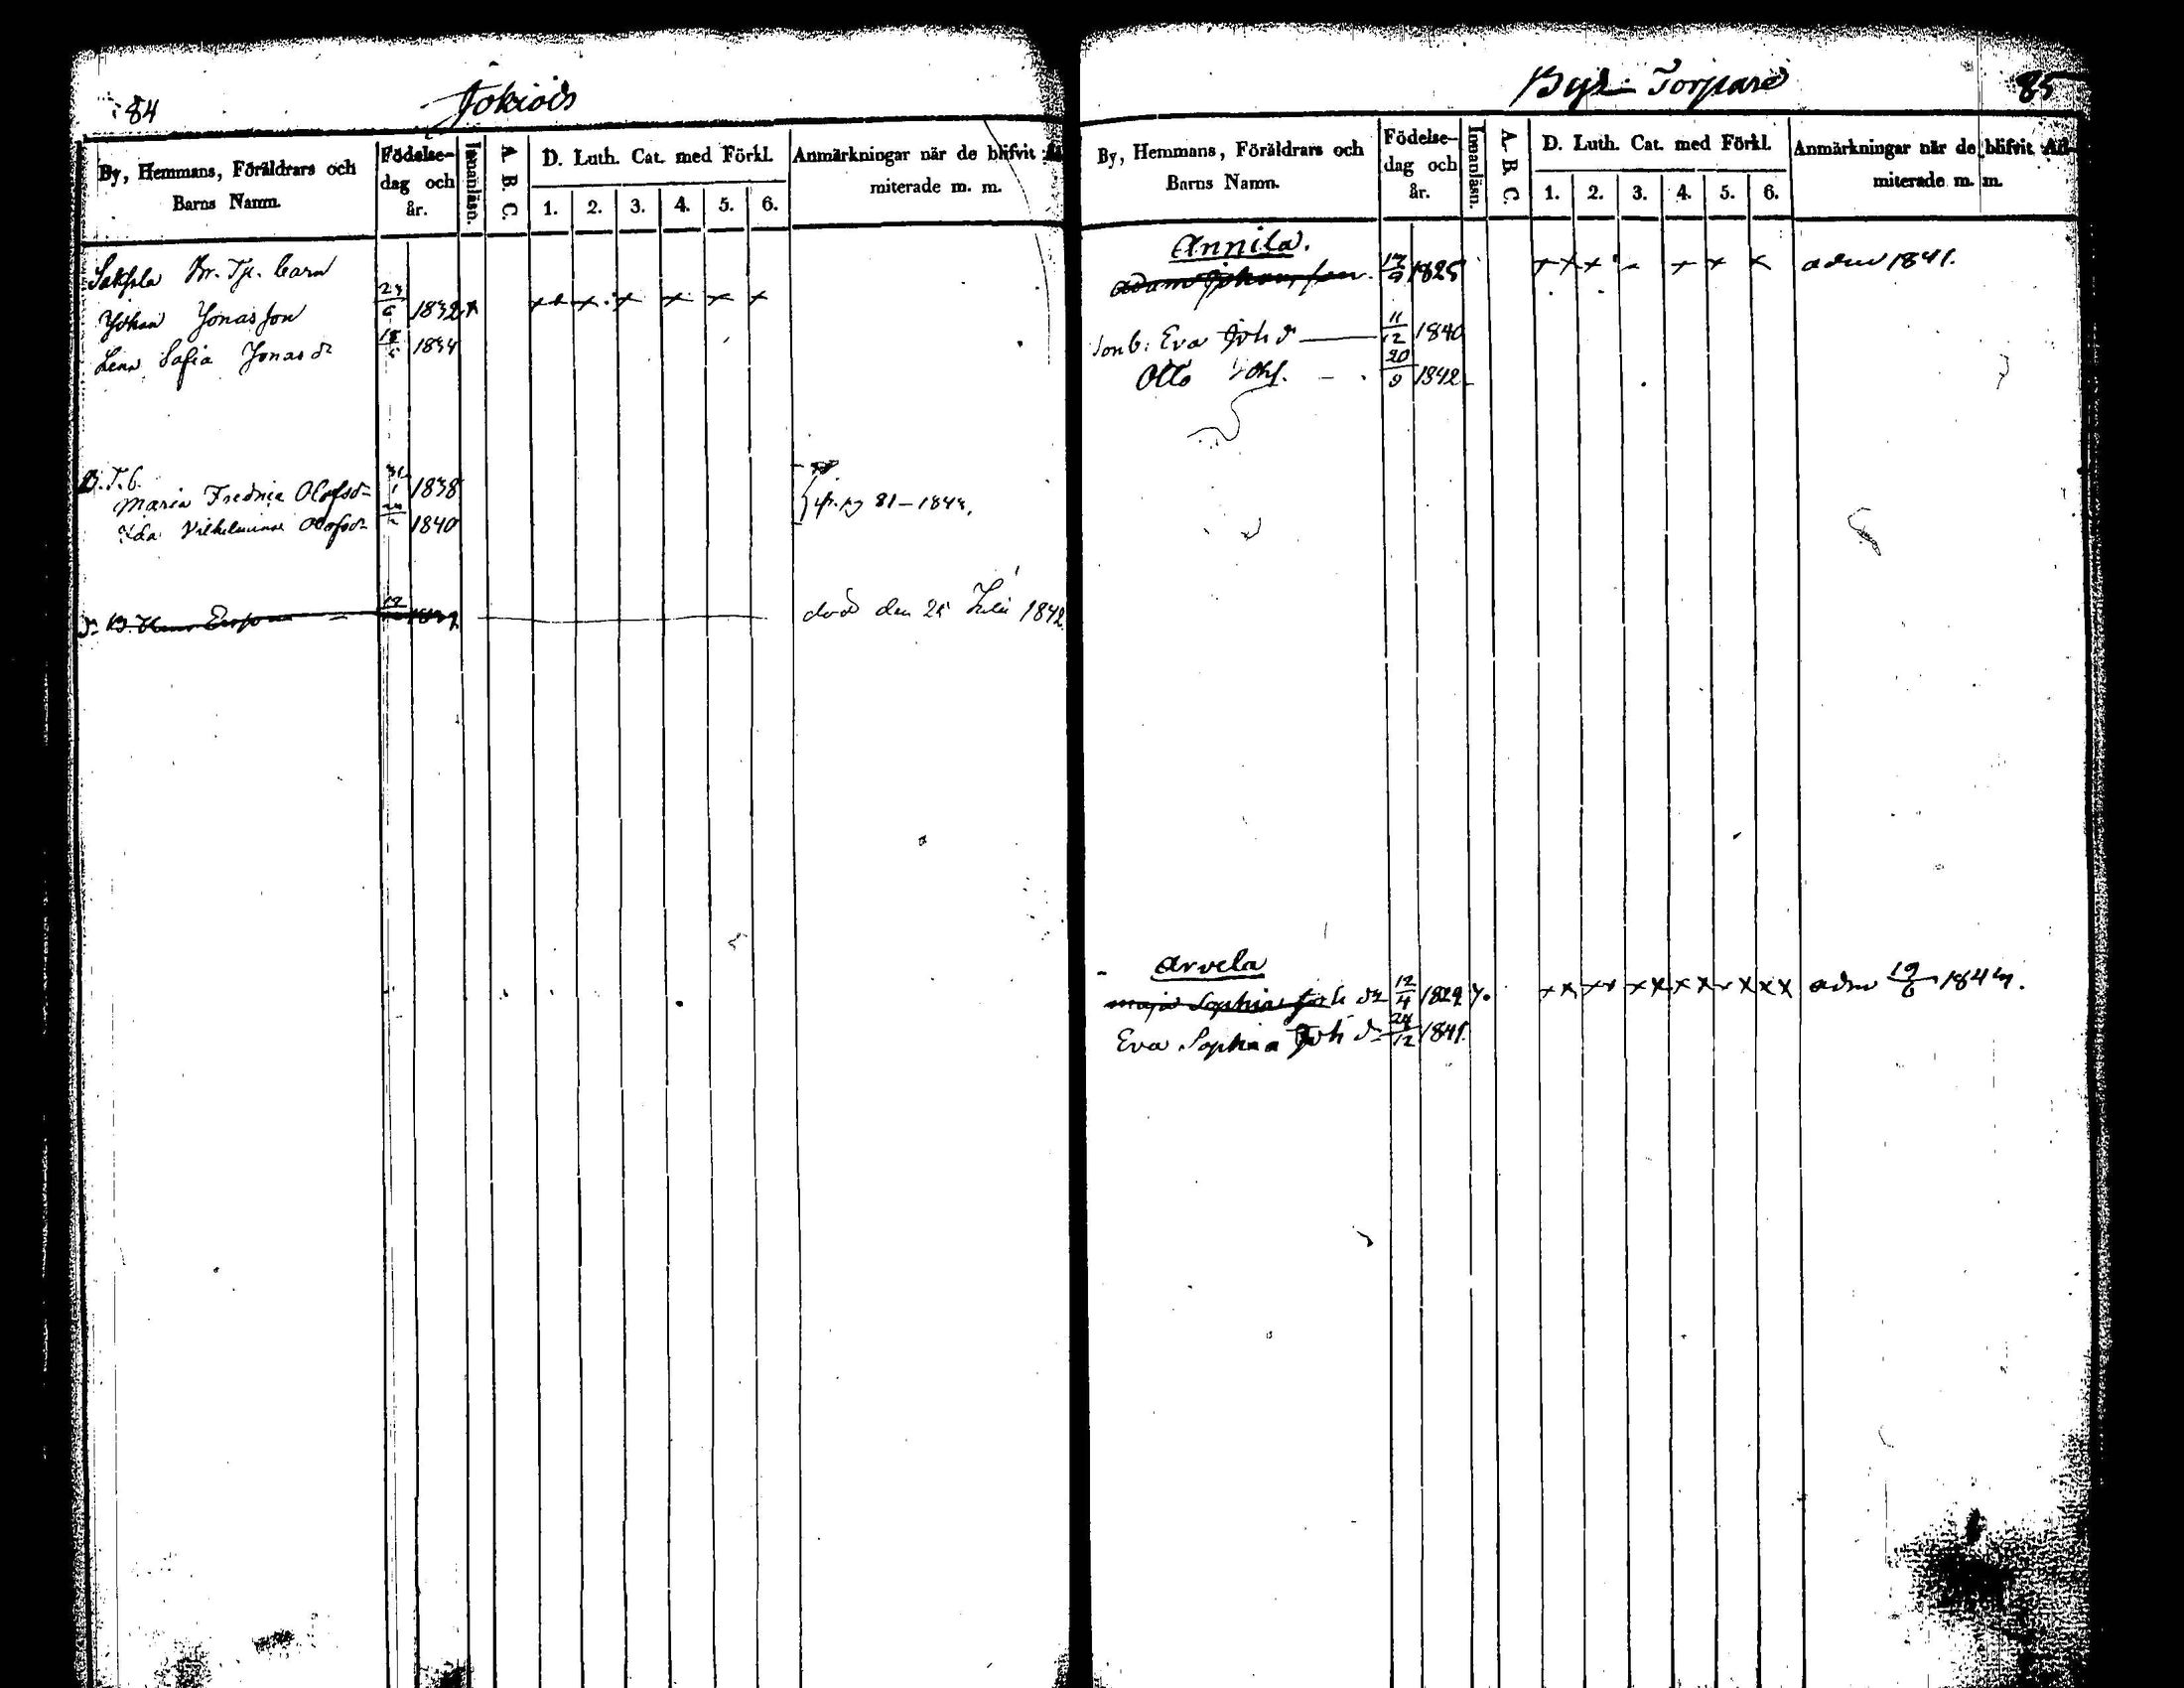 84
Jokiois
By, Hemmans, Föräldrars och Barns Namn.
Födelse-dag och år.
Innanläsn.
A. B. C.
D. Luth. Cat. med Förkl.
1. 2. 3. 4. 5. 6.
Anmärkningar när de blifvit miterade m. m.
barn
Johan Jonasson 1832 x x x x x x x
Lena Sofia Jonasd 1834
B. T. b.
Maria Fredrica Olofsd 1838
Ida Vilhelmina Olofsd 1840
81 – 184
12
död den Julii 1842
Bys Torpare
85
By, Hemmans, Föräldrars och Barns Namn.
Födelse-dag och år.
Innanläsn.
A. B. C.
D. Luth. Cat. med Förkl.
1. 2. 3. 4. 5. 6.
Anmärkningar när de blifvit Ad-miterade m. m.
Annila.
Adam Johansson 1825 x x x x x x adm 1841.
Sonb: Eva Joh d 11/12 1840
Otto 20/9 1842
Arvela
Maja Sophia Joh dr 12/4 1829 x x x x x x x x x x x adm 19/6 184
Eva Sophia Joh d 24/12 1841.